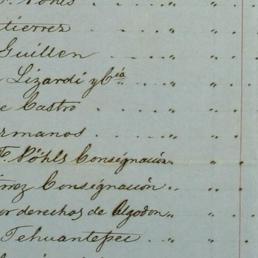 Pöhls
tierrez
Guillen
Lizardi y Cia
e Castro
ermanos
F. Pöhls Consignación
Consignación
or derechos de Algodon
Tehuantepec